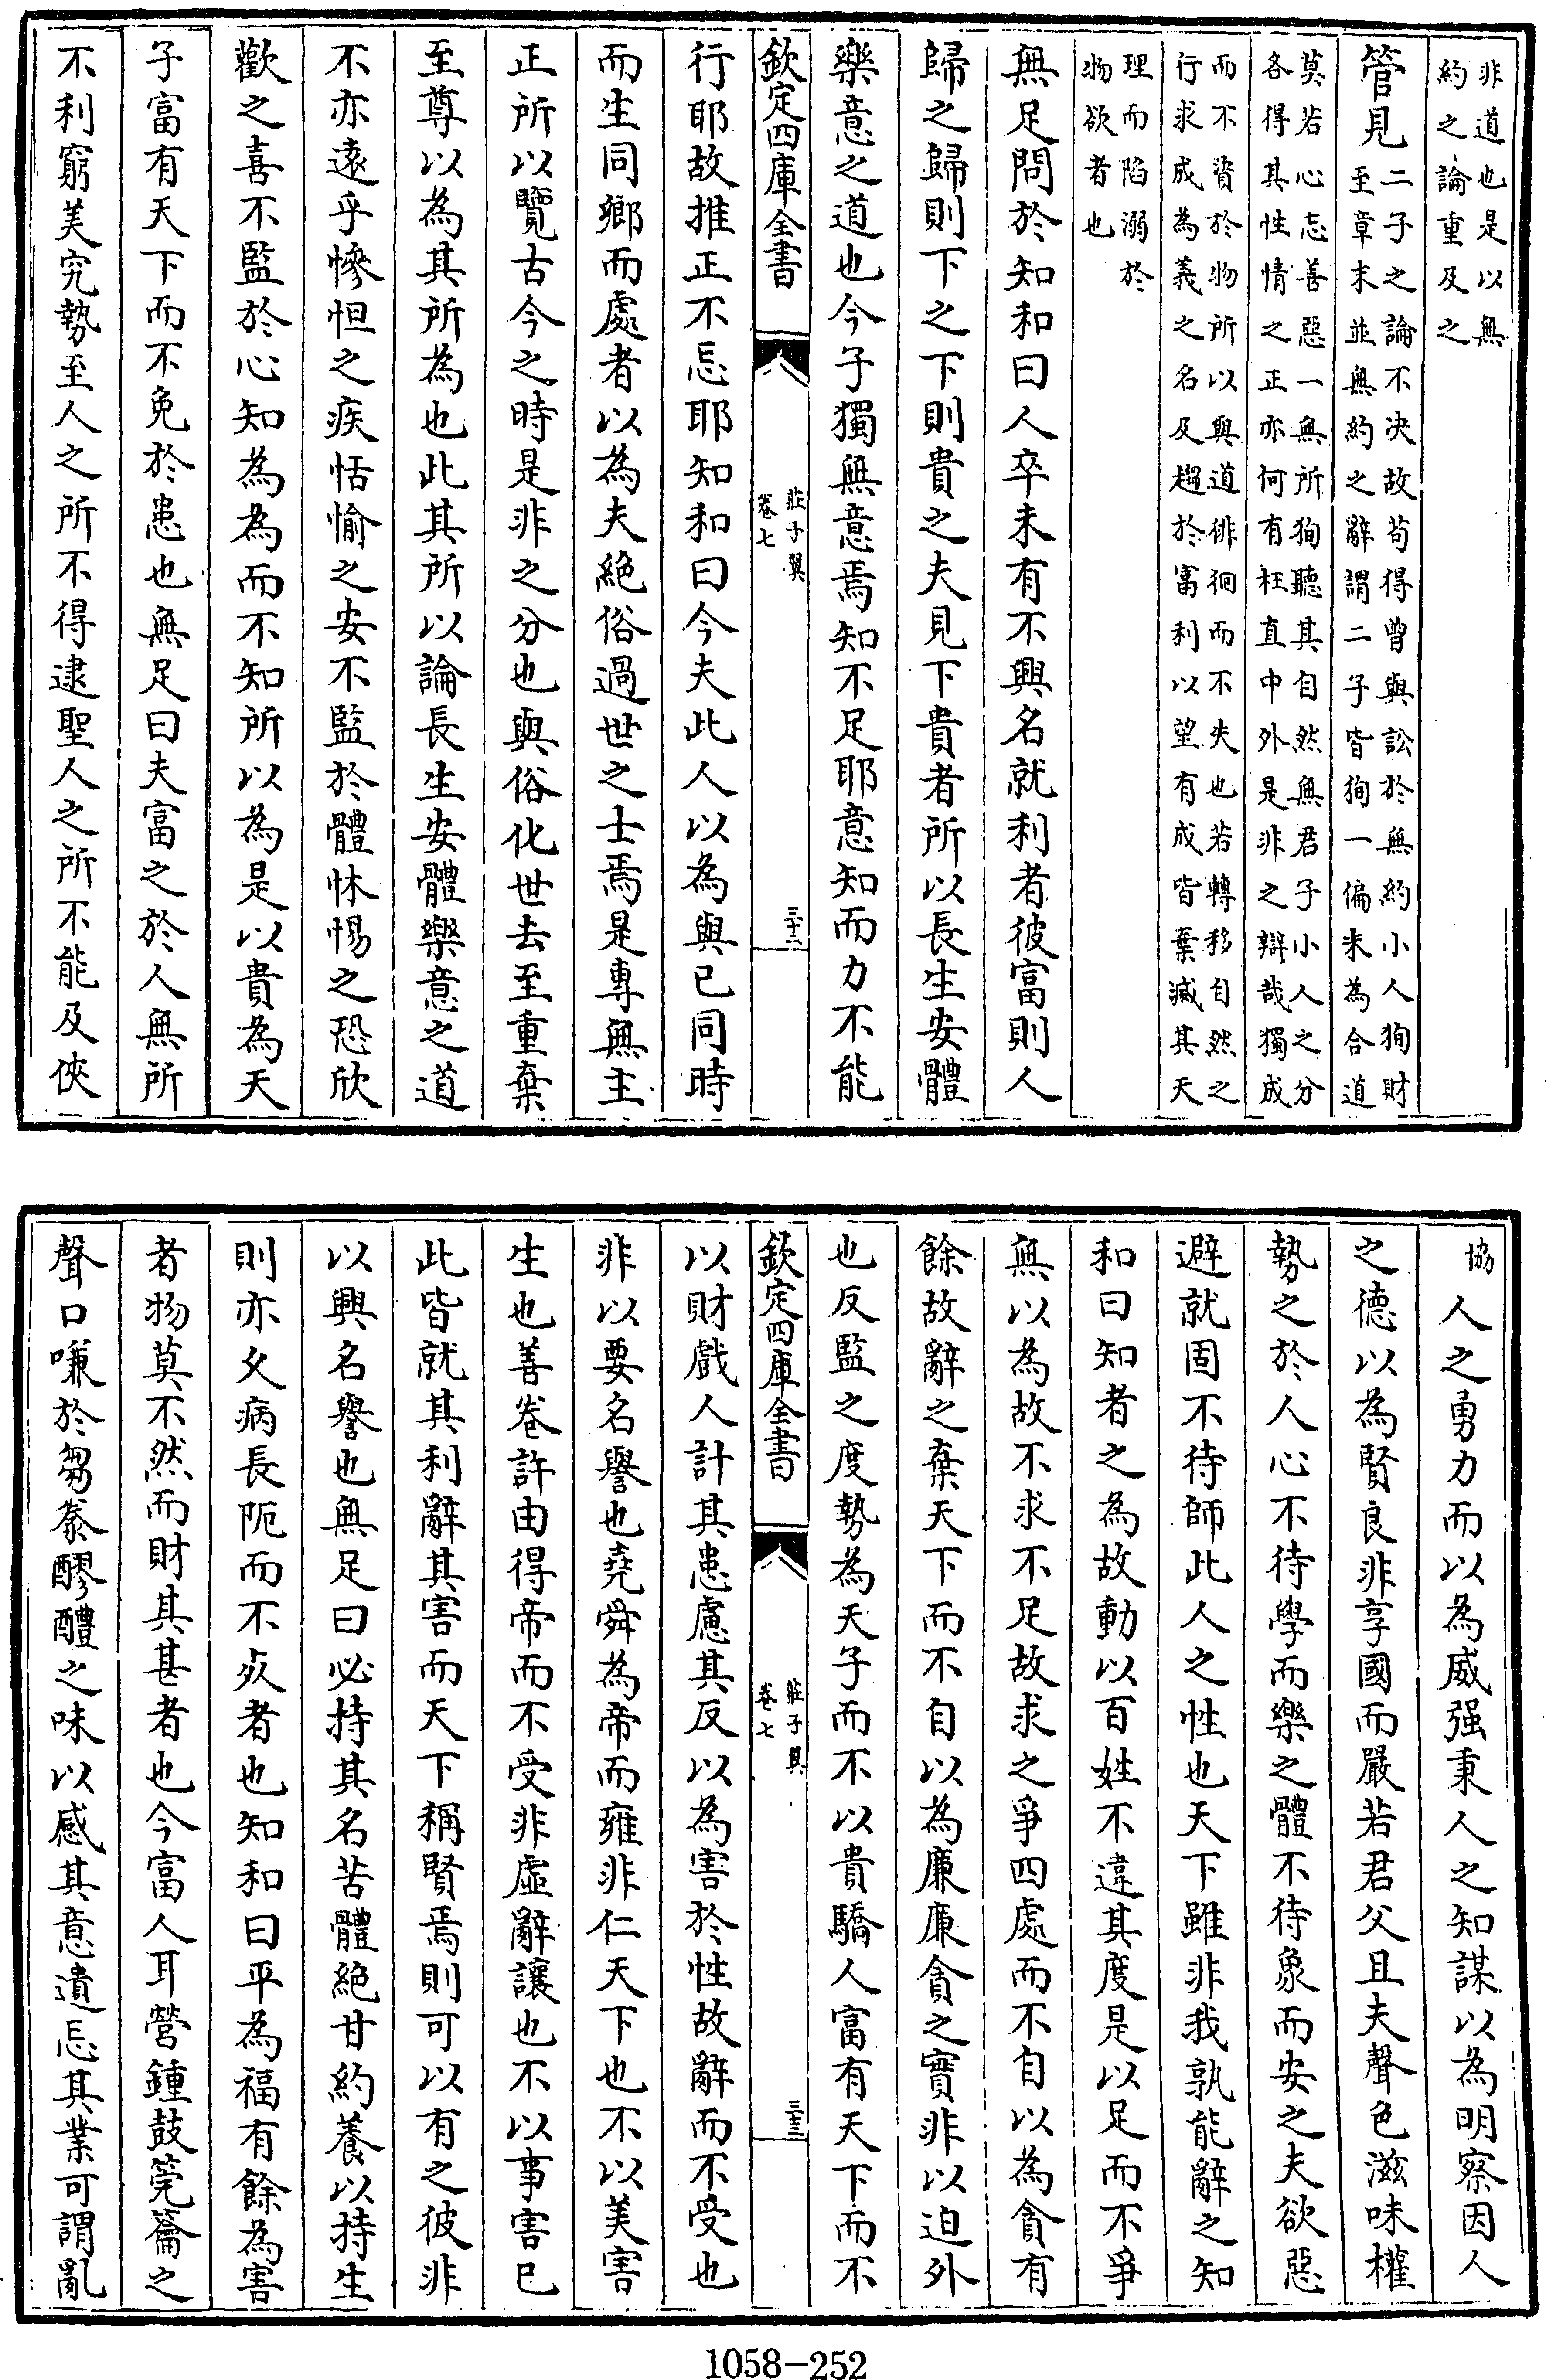 非道也是以無
約之論重及之
管見二子之論不决故苟得曾與訟於無約小人狥財
至章末並無約之辭謂二子皆狥一偏未為合道
莫若心忘善惡一無所狥聽其自然無君子小人之分
各得其性情之正亦何有枉直中外是非之辯哉獨成
而不資於物所以與道徘徊而不失也若轉移自然之
行求成為義之名及趨於富利以望有成皆棄滅其天
理而陷溺於
物欲者也
無足問於知和曰人卒未有不興名就利者彼富則人
歸之歸則下之下則貴之夫見下貴者所以長生安體
樂意之道也今子獨無意焉知不足耶意知而力不能
欽定四庫全書
莊子翼
卷七
三十二
行耶故推正不忘耶知和曰今夫此人以為與已同時
而生同鄉而處者以為夫絶俗過世之士焉是專無主
正所以覽古今之時是非之分也與俗化世去至重棄
至尊以為其所為也此其所以論長生安體樂意之道
不亦遠乎慘怛之疾恬愉之安不監於體怵惕之恐欣
歡之喜不監於心知為為而不知所以為是以貴為天
子富有天下而不免於患也無足曰夫富之於人無所
不利窮美究勢至人之所不得逮聖人之所不能及俠
協
人之勇力而以為威强秉人之知謀以為明察因人
之德以為賢良非享國而嚴若君父且夫聲色滋味權
勢之於人心不待學而樂之體不待象而安之夫欲惡
避就固不待師此人之性也天下雖非我孰能辭之知
和曰知者之為故動以百姓不違其度是以足而不爭
無以為故不求不足故求之爭四處而不自以為貪有
餘故辭之棄天下而不自以為廉廉貪之實非以迫外
也反監之度勢為天子而不以貴驕人富有天下而不
欽定四庫全書
莊子翼
卷七
三十三
以財戲人計其患慮其反以為害於性故辭而不受也
非以要名譽也堯舜為帝而雍非仁天下也不以美害
生也善卷許由得帝而不受非虛辭讓也不以事害已
此皆就其利辭其害而天下稱賢焉則可以有之彼非
以興名譽也無足曰必持其名苦體絶甘約養以持生
則亦久病長阨而不死者也知和曰平為福有餘為害
者物莫不然而財其甚者也今富人耳營鍾鼓筦籥之
聲口嗛於芻豢醪醴之味以感其意遺忘其業可謂亂
1058-252